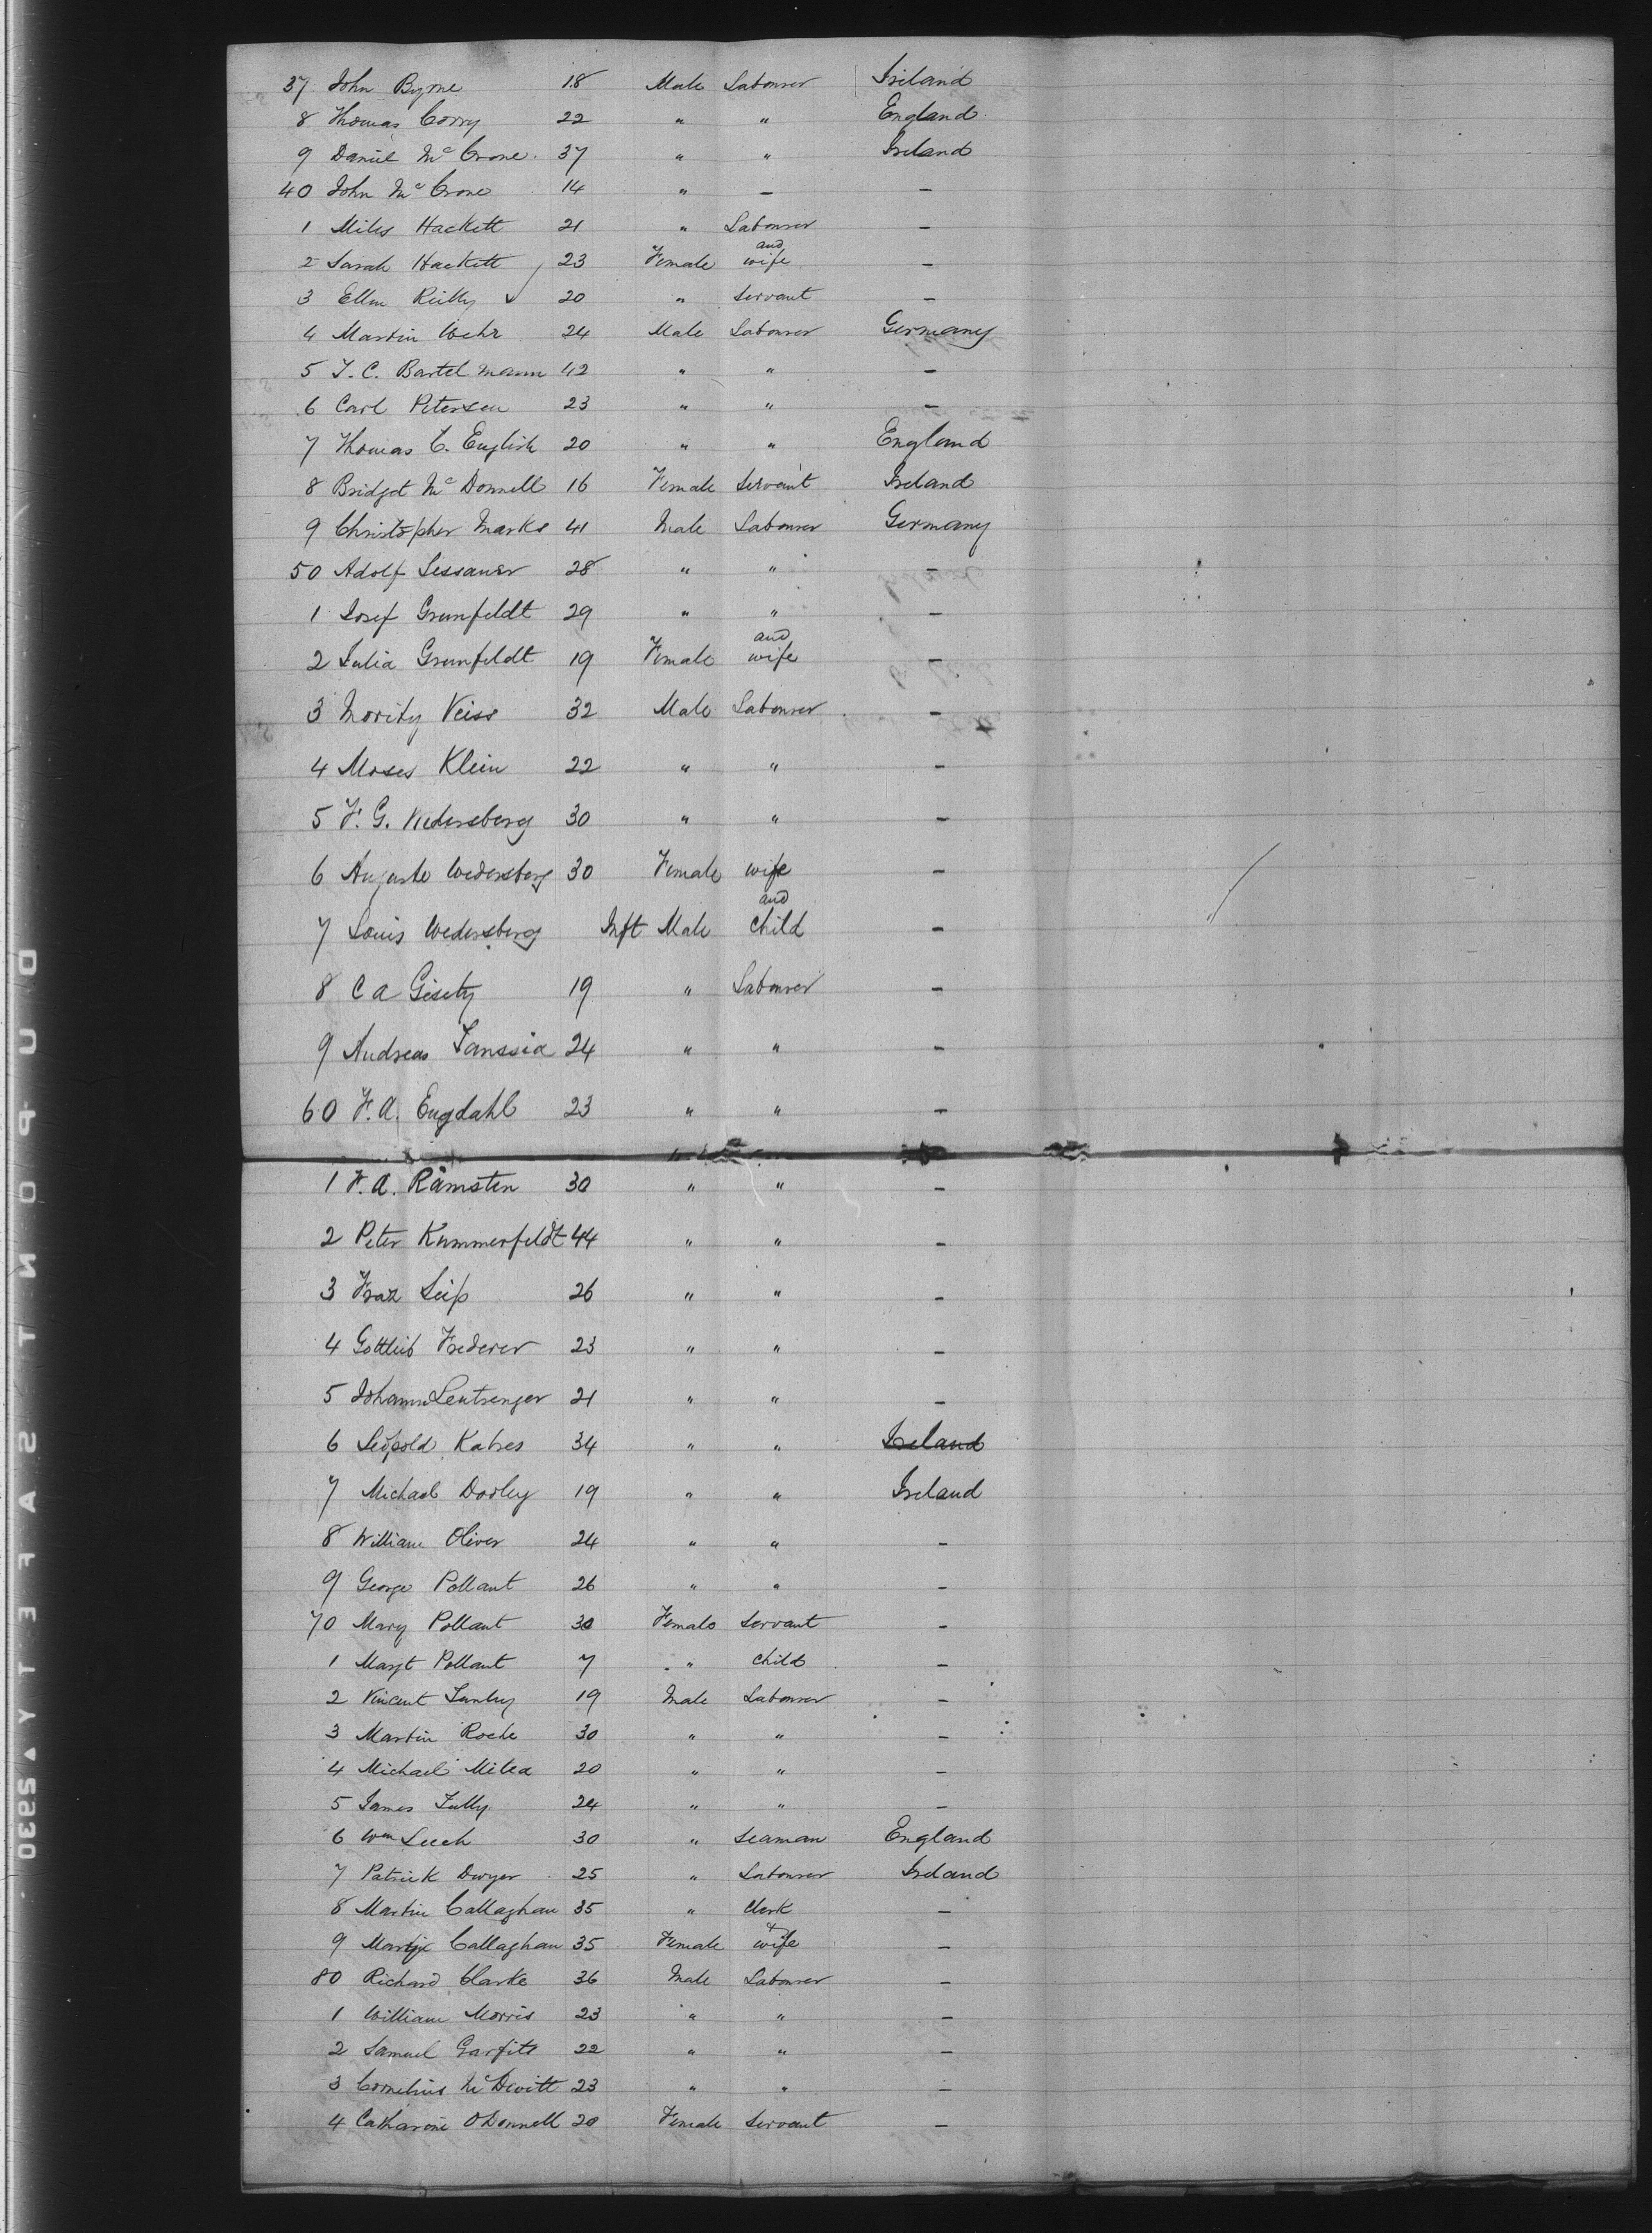 37 John Byrne 18 Male Labourer Ireland
8 Thomas Corry 22 " " England
9 Daniel McCrone 37 " " Ireland
40 John McCrone 14 " - -
1 Miles Hackett 21 " Labourer -
2 Sarah Hackett 23 Female and wife -
3 Ellen Reilly 20 " Servant -
4 Martin Wehr 24 Male Labourer Germany
5 J. C. Bartelmann 42 " " -
6 Carl Petersen 23 " " -
7 Thomas C. English 20 " " England
8 Bridget McDonnell 16 Female Servant Ireland
9 Christopher Marks 41 Male Labourer Germany
50 Adolf Lessauer 28 " " -
1 Josef Grunfeldt 29 " " -
2 Julia Grunfeldt 19 Female and wife -
3 Moritz Veiss 32 Male Labourer -
4 Moses Klein 22 " " -
5 F. G. Wedersberg 30 " " -
6 Auguste Wedersberg 30 Female wife -
7 Louis Wedersberg Inft Male and child -
8 C A Gisety 19 " Labourer -
9 Andreas Janssia 24 " " -
60 F. A. Engdahl 23 " " -
1 F. A. Råmsten 30 " " -
2 Peter Kummerfeldt 44 " " -
3 Fraz Leip 26 " " -
4 Gottlieb Frederer 23 " " -
5 Johann Lentrenger 21 " " -
6 Leopold Katres 34 " " Ireland
7 Michael Dorley 19 " " Ireland
8 William Oliver 24 " " -
9 George Pollant 26 " " -
70 Mary Pollant 30 Female Servant -
1 Margt Pollant 7 " Child -
2 Vincent 19 Male Labourer -
3 Martin Roche 30 " " -
4 Michael Milea 20 " " -
5 James Tully 24 " " -
6 Wm Leech 30 " Seaman England
7 Patrick Dwyer 25 " Labourer Ireland
8 Martin Callaghan 35 " Clerk -
9 Callaghan 35 Female & wife -
80 Richard Clarke 36 Male Labourer -
1 William Morris 23 " " -
2 Samuel Garfite 22 " " -
3 Cornelius McDevitt 23 " " -
4 Catharine O'Donnell 20 Female Servant -
DUPONT SAFETY 5330